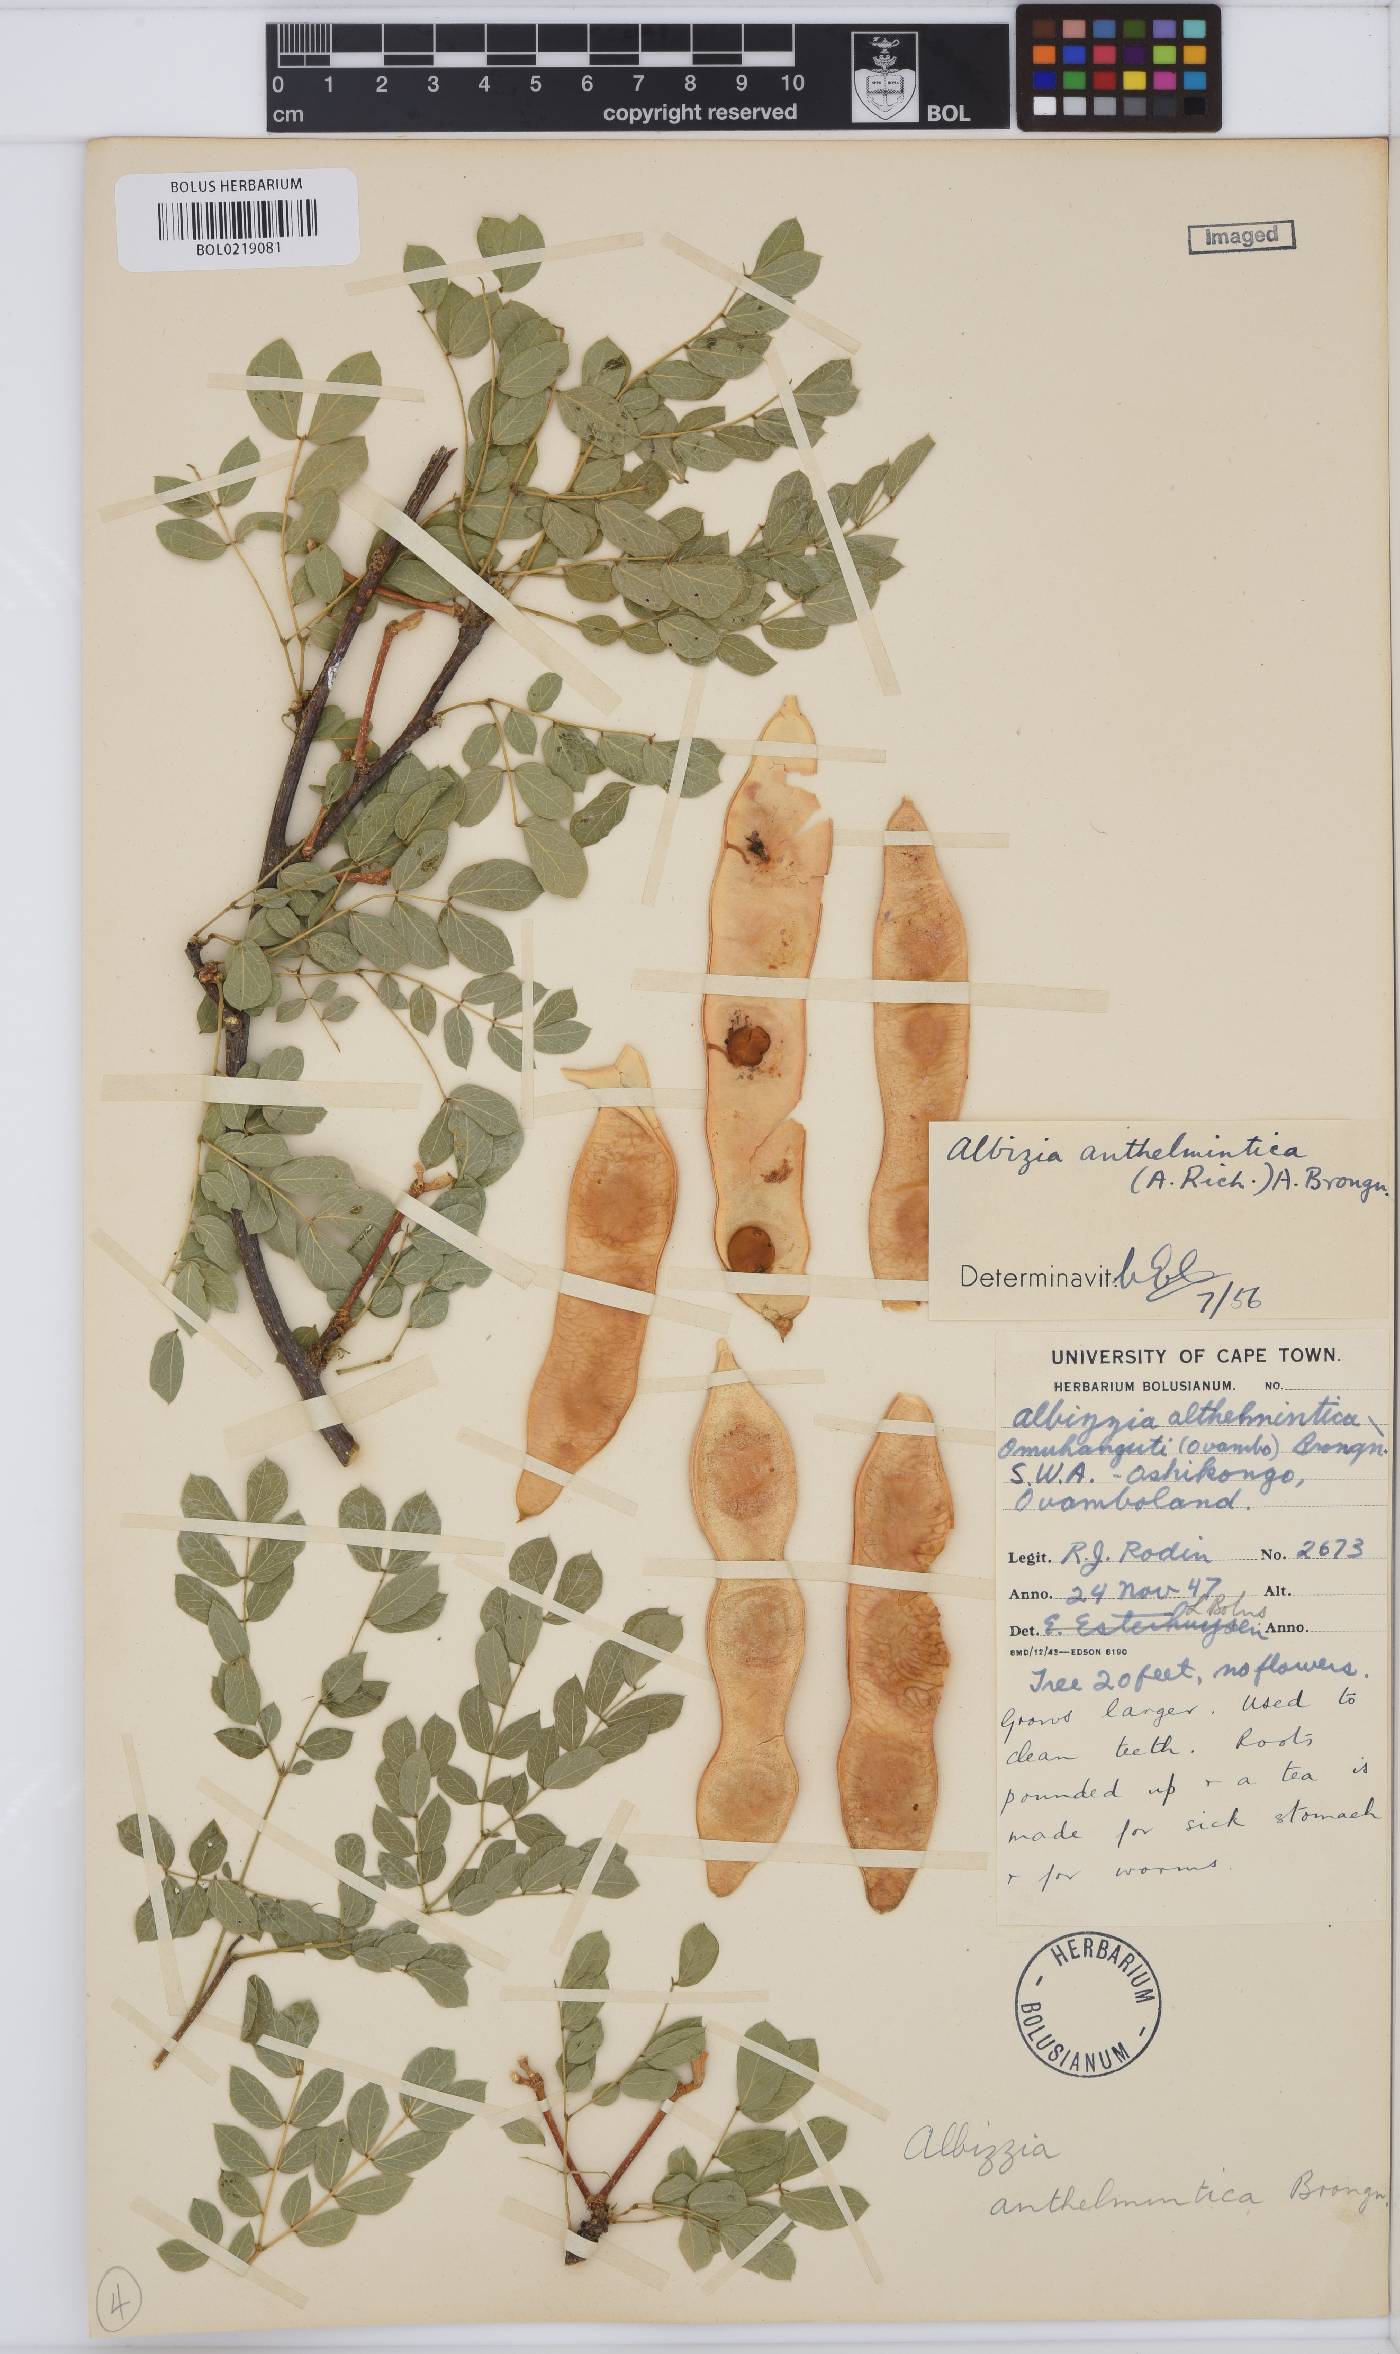 0 1 2 3 4 5 6 7 8 9 10
cm
copyright reserved
BOL
BOLUS HERBARIUM
BOL0219081
Imaged
Albizia anthelmintica
(A. Rich.) A. Brongn.
Determinavit:
7/56
UNIVERSITY OF CAPE TOWN.
HERBARIUM BOLUSIANUM. NO.
Albizzia althelmintica
Omuhanguti (Ovambo) Brongn.
S.W.A. - Oshikongo,
Ovamboland.
Legit. R.J. Rodin No. 2673
Anno. 24 Nov 47 Alt.
L Bolus
Det. E. Esterhuysen Anno.
6MD/12/43—EDSON 6190
Tree 20 feet, no flowers.
Grows larger. Used to
clean teeth. Roots
pounded up + a tea is
made for sick stomach
+ for worms.
HERBARIUM
- BOLUSIANUM -
Albizzia
anthelmintica Brongn.
4